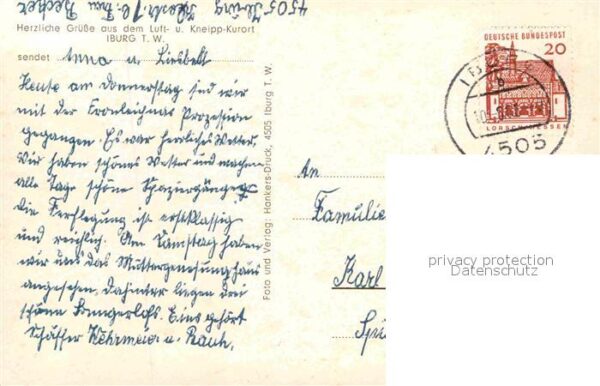 4505 Iburg
Herzliche Grüße aus dem Luft- u. Kneipp-Kurort
IBURG T. W.
sendet Anna u. Liesbeth
Heute am Donnerstag sind wir
mit der Fronleichnams Prozession
gegangen. Es war herrliches Wetter,
Wir haben schönes Wetter und machen
alle Tage schöne Spaziergänge
die Verpflegung ist erstklassig
und reichlig. Am Samstag haben
wir uns das Müttergenesungshaus
angesehen, dahinter liegen drei
schöne Bungerlofs. Eins gehört
Schäffer u.
Foto und Verlag: Hankers-Druck, 4505 Iburg T. W.
DEUTSCHE BUNDESPOST
20
LORSCH HESSEN
4505
An
Familie
Karl
privacy protection
Datenschutz